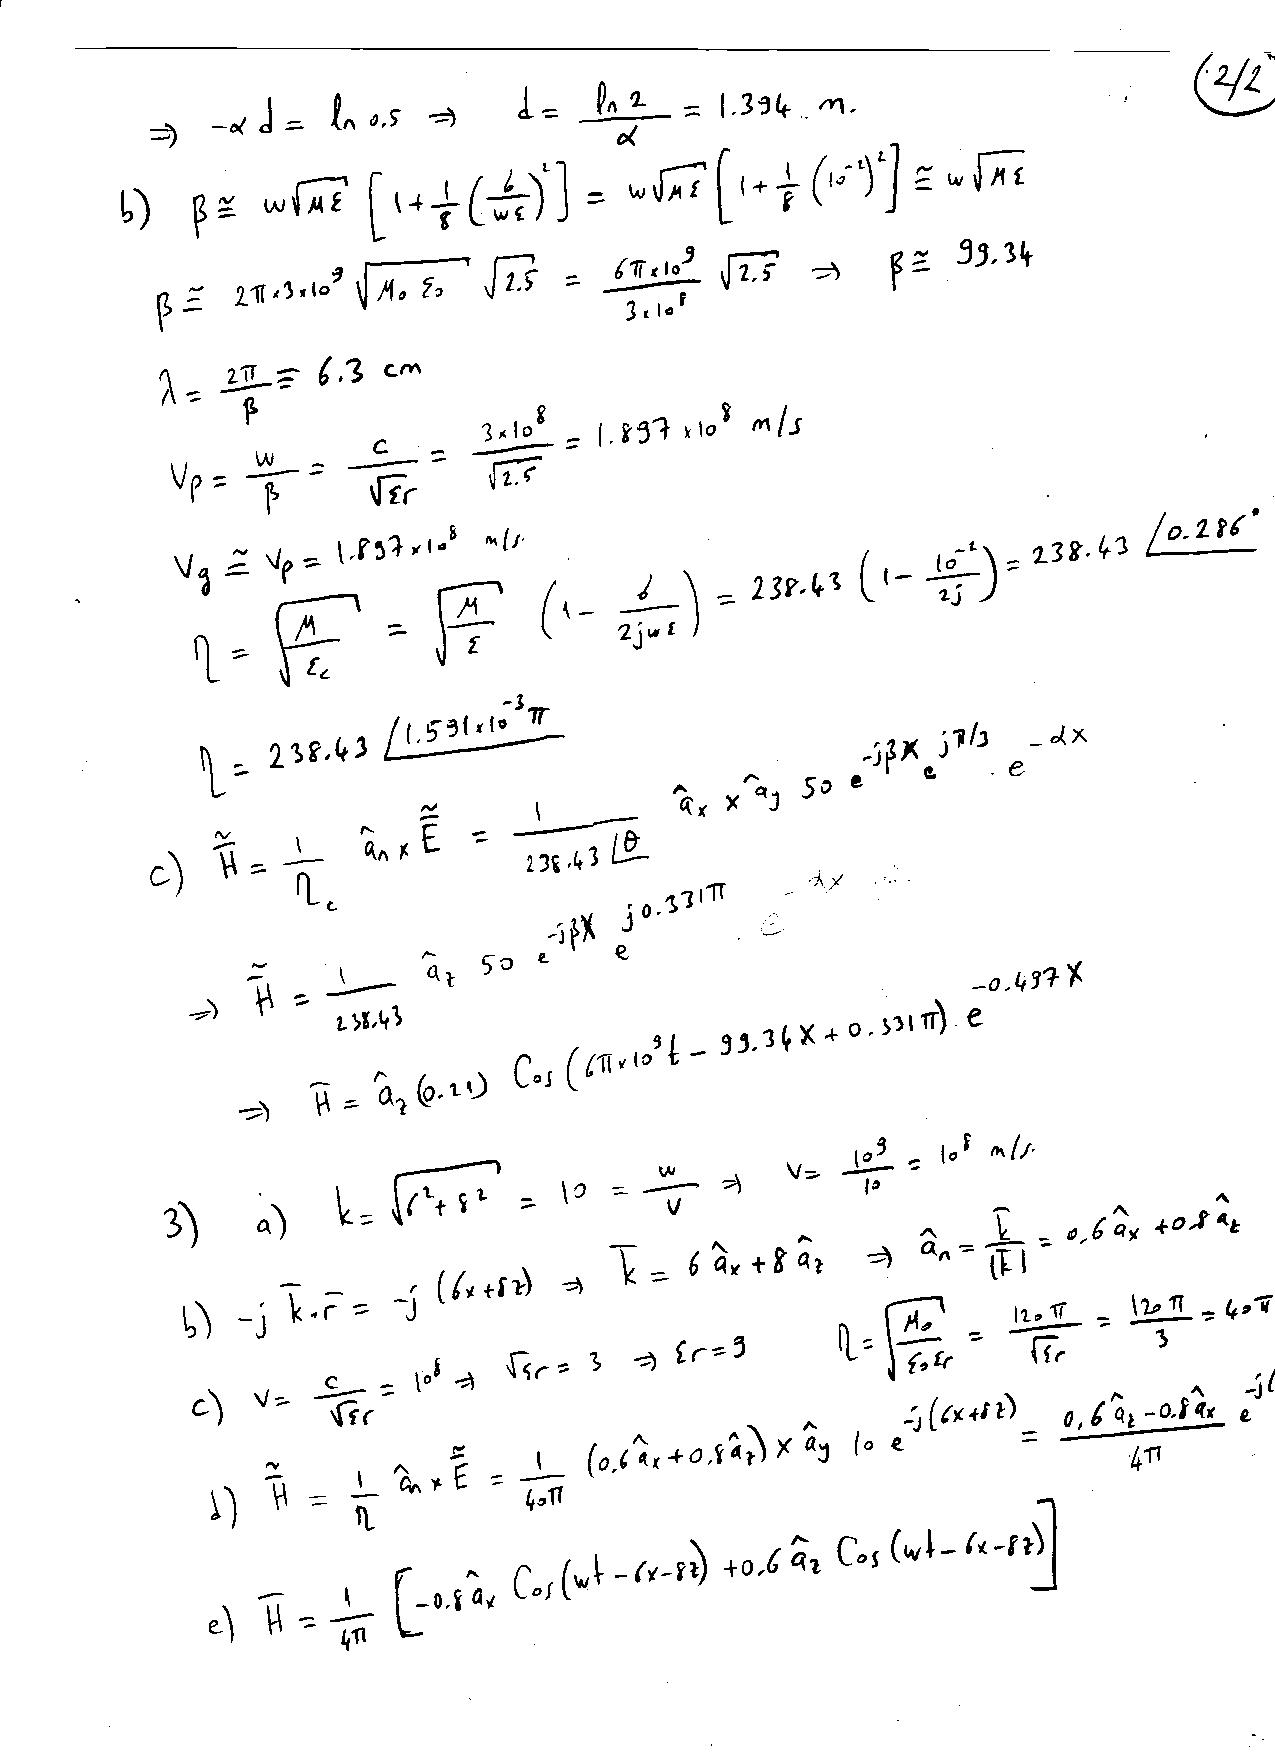 2/2
⇒ -αd = ln 0.5 ⇒ d = ln 2 / α = 1.394 m.
b) β ≅ w√(με) [1 + 1/8 (σ/wε)²] = w√(με) [1 + 1/8 (10⁻²)²] ≅ w√(με)
β ≅ 2π×3×10⁹ √(μ₀ ε₀) √2.5 = 6π×10⁹ / 3×10⁸ √2.5 ⇒ β ≅ 99.34
λ = 2π/β ≅ 6.3 cm
Vp = w/β = c/√εr = 3×10⁸/√2.5 = 1.897×10⁸ m/s
Vg ≅ Vp = 1.897×10⁸ m/s.
η = √(μ/εc) = √(μ/ε) (1 - σ/2jwε) = 238.43 (1 - 10⁻²/2j) = 238.43 ∠0.286°
η = 238.43 ∠1.591×10⁻³π
c) H̃ = 1/ηc âₙ × Ẽ = 1/238.43∠θ âx × ây 50 e^(-jβx) e^(jπ/3) . e^(-αx)
⇒ H̃ = 1/238.43 âz 50 e^(-jβx) e^(j0.331π) . e^(-αx)
⇒ H̄ = âz (0.21) Cos (6π×10⁹t - 99.34x + 0.331π) . e^(-0.497x)
3) a) k = √(6²+8²) = 10 = w/v ⇒ v = 10⁹/10 = 10⁸ m/s.
b) -j k̄.r̄ = -j (6x+8z) ⇒ k̄ = 6âx + 8âz ⇒ âₙ = k̄/|k̄| = 0.6âx + 0.8âz
c) v = c/√εr = 10⁸ ⇒ √εr = 3 ⇒ εr = 9 η = √(μ₀/ε₀εr) = 120π/√εr = 120π/3 = 40π
d) H̃ = 1/η âₙ × Ẽ = 1/40π (0.6âx + 0.8âz) × ây 10 e^(-j(6x+8z)) = (0.6âz - 0.8âx)/4π e^(-j(
e) H̄ = 1/4π [-0.8âx Cos(wt - 6x - 8z) + 0.6âz Cos(wt - 6x - 8z)]